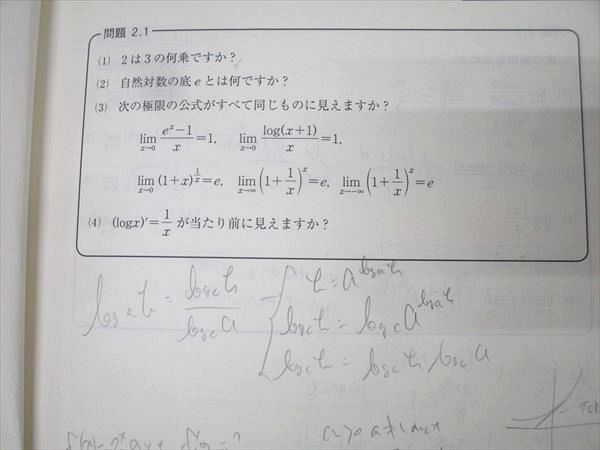 問題 2.1
(1) 2は3の何乗ですか？
(2) 自然対数の底 e とは何ですか？
(3) 次の極限の公式がすべて同じものに見えますか？
lim_{x→0} (e^x−1)/x=1, lim_{x→0} log(x+1)/x=1,
lim_{x→0} (1+x)^{1/x}=e, lim_{x→∞} (1+1/x)^x=e, lim_{x→−∞} (1+1/x)^x=e
(4) (log x)′=1/x が当たり前に見えますか？
log_a b = log_c b / log_c a
b = a^{log_a b}
log_c b = log_c a^{log_a b}